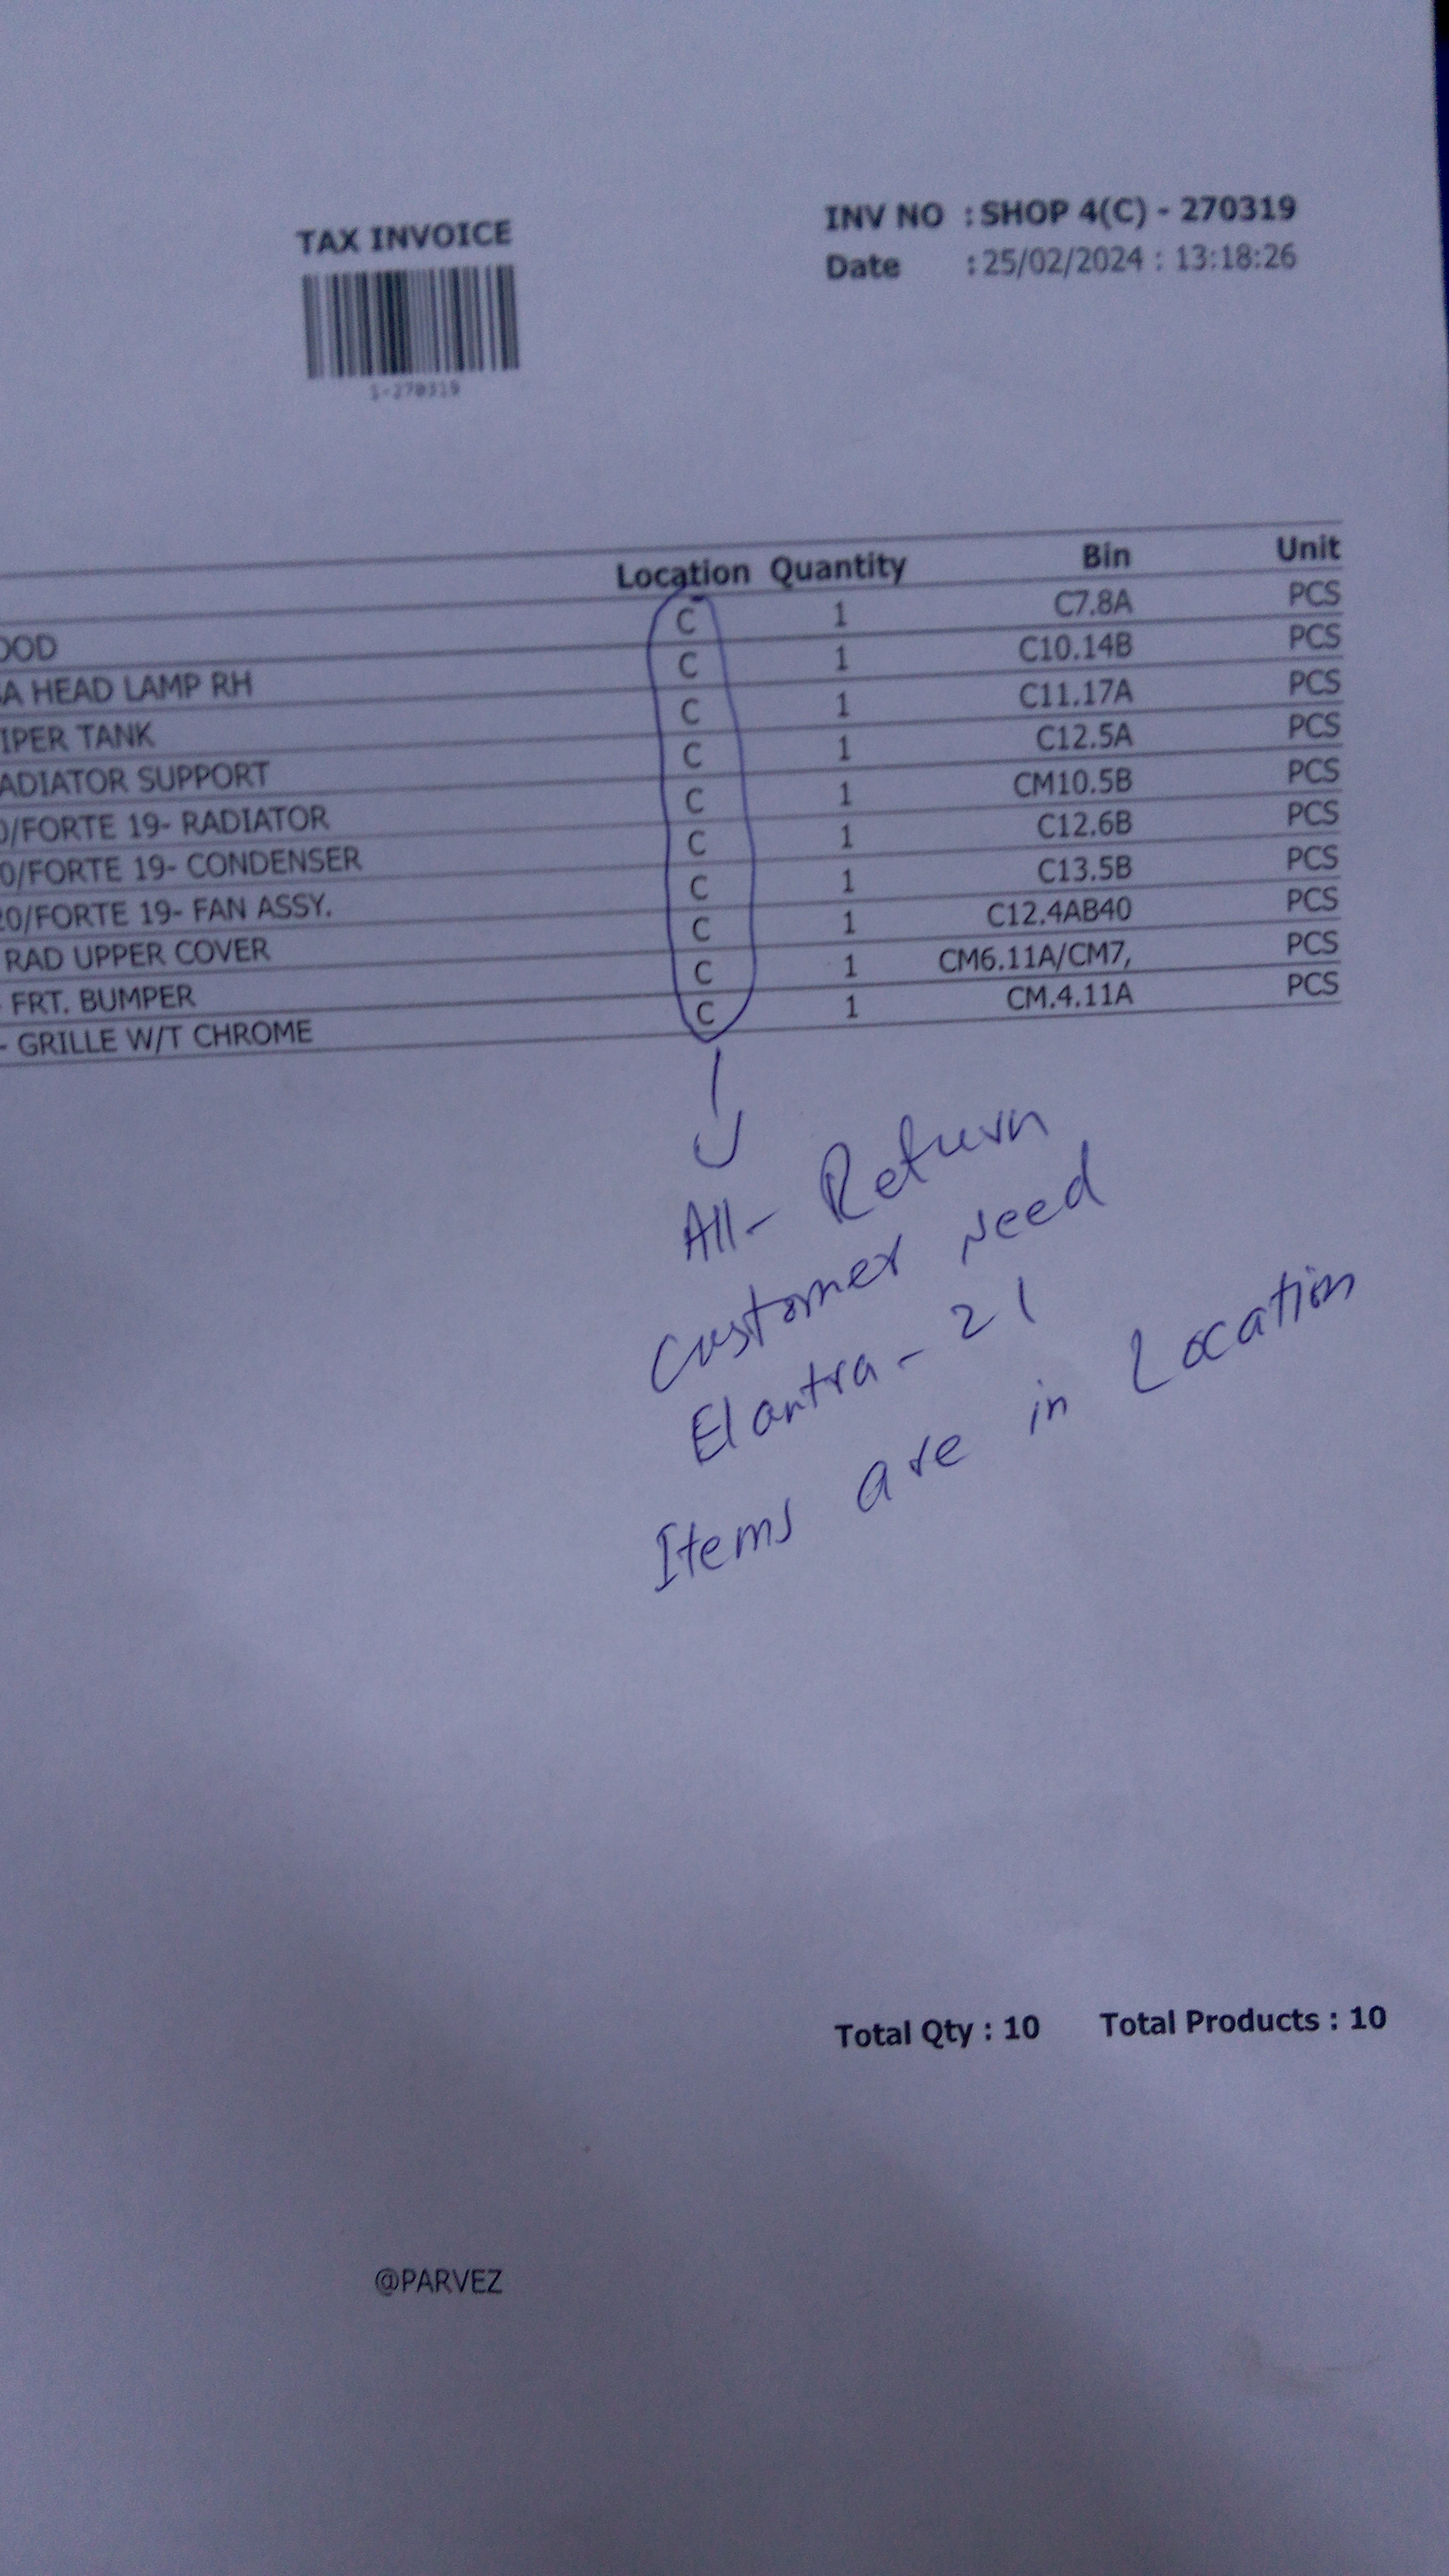 TAX INVOICE
INV NO : SHOP 4(C) - 270319
Date : 25/02/2024 : 13:18:26
S-270319
Location Quantity Bin Unit
OOD C 1 C7.8A PCS
A HEAD LAMP RH C 1 C10.14B PCS
IPER TANK C 1 C11.17A PCS
ADIATOR SUPPORT C 1 C12.5A PCS
0/FORTE 19- RADIATOR C 1 CM10.5B PCS
0/FORTE 19- CONDENSER C 1 C12.6B PCS
20/FORTE 19- FAN ASSY. C 1 C13.5B PCS
RAD UPPER COVER C 1 C12.4AB40 PCS
- FRT. BUMPER C 1 CM6.11A/CM7, PCS
- GRILLE W/T CHROME C 1 CM.4.11A PCS
All- Return
Customer Need
Elantra - 21
Items are in Location
Total Qty : 10 Total Products : 10
@PARVEZ